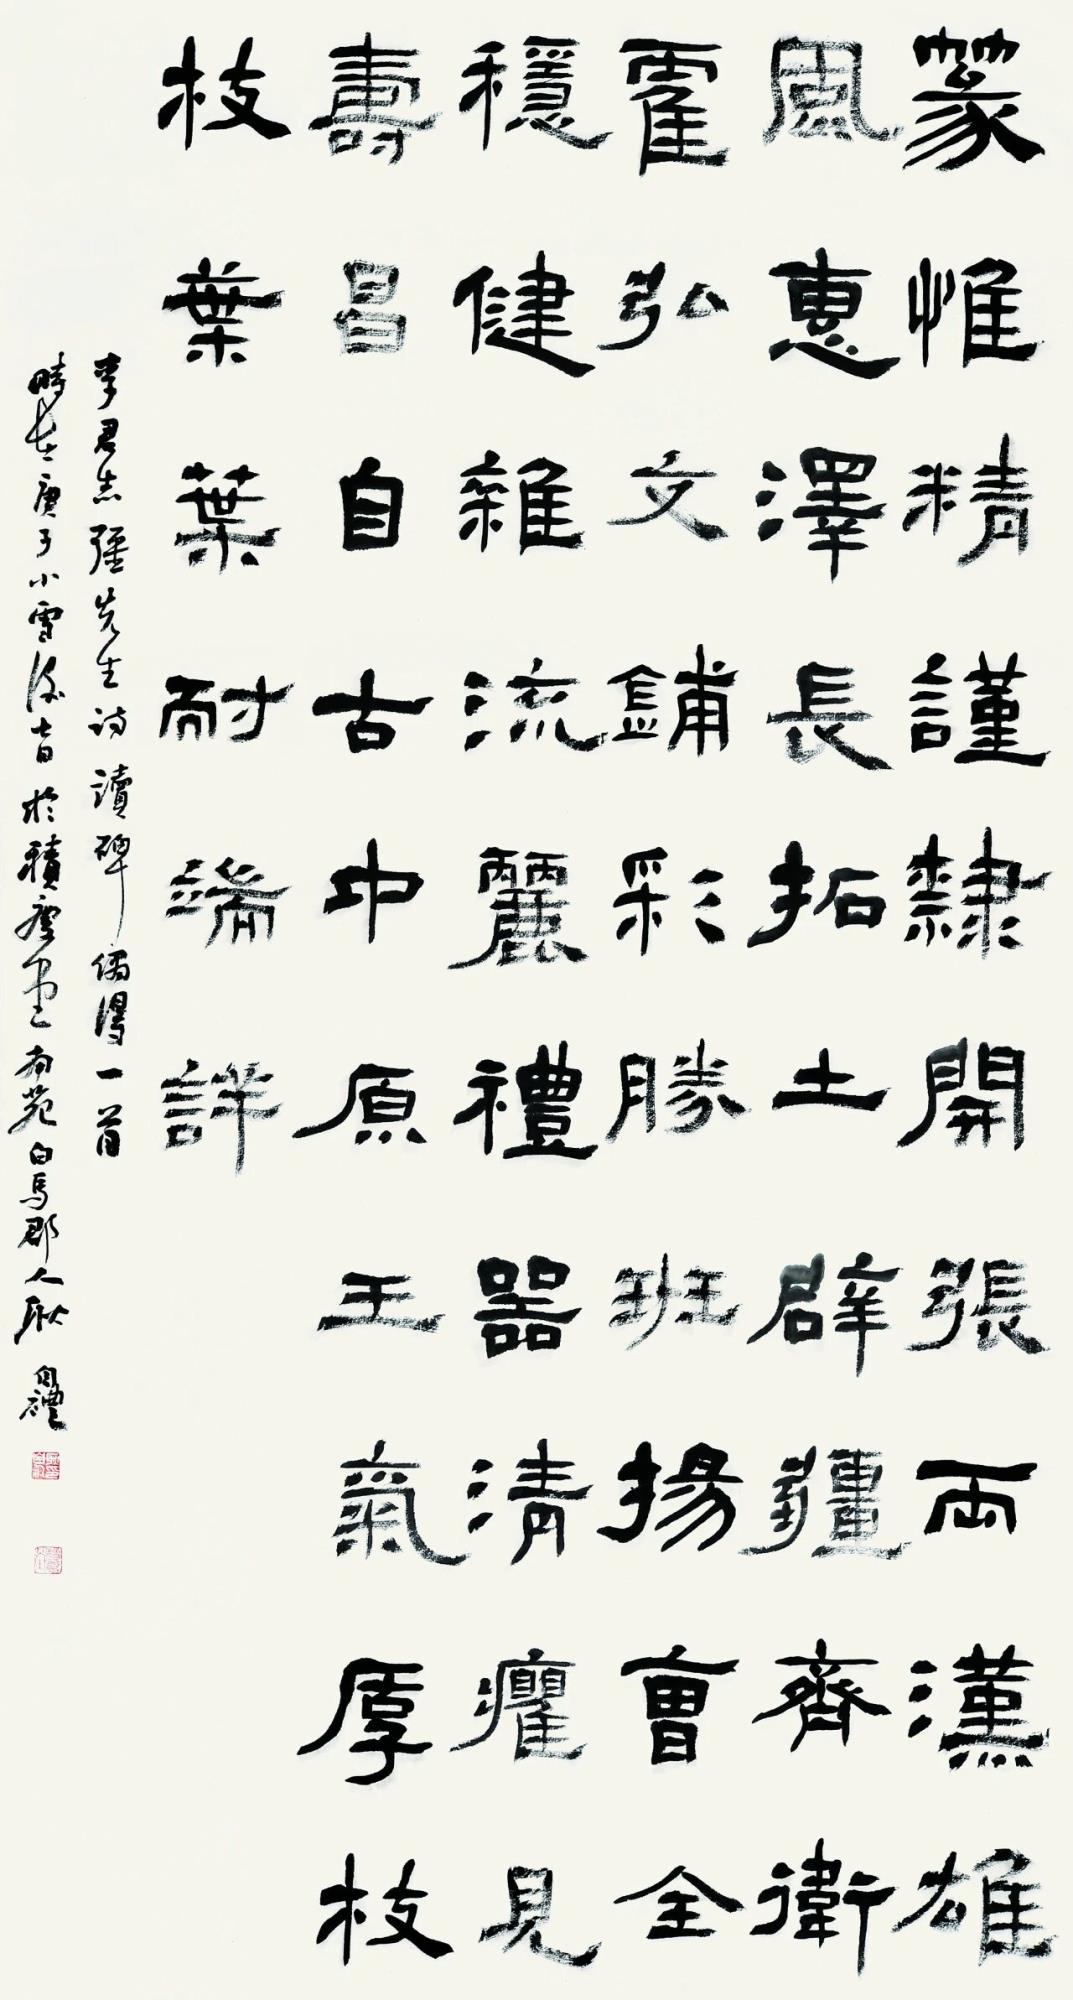 篆惟精謹隸開張兩漢雄
風惠澤長拓土辟疆齊衛
霍弘文鋪彩勝班揚曹全
穩健雜流麗禮器清癯見
壽昌自古中原王氣厚枝
枝葉葉耐端詳
李君志强先生詩讀碑偶得一首
時在庚子小雪後十日於積慶堂南苑白馬郡人耿自禮